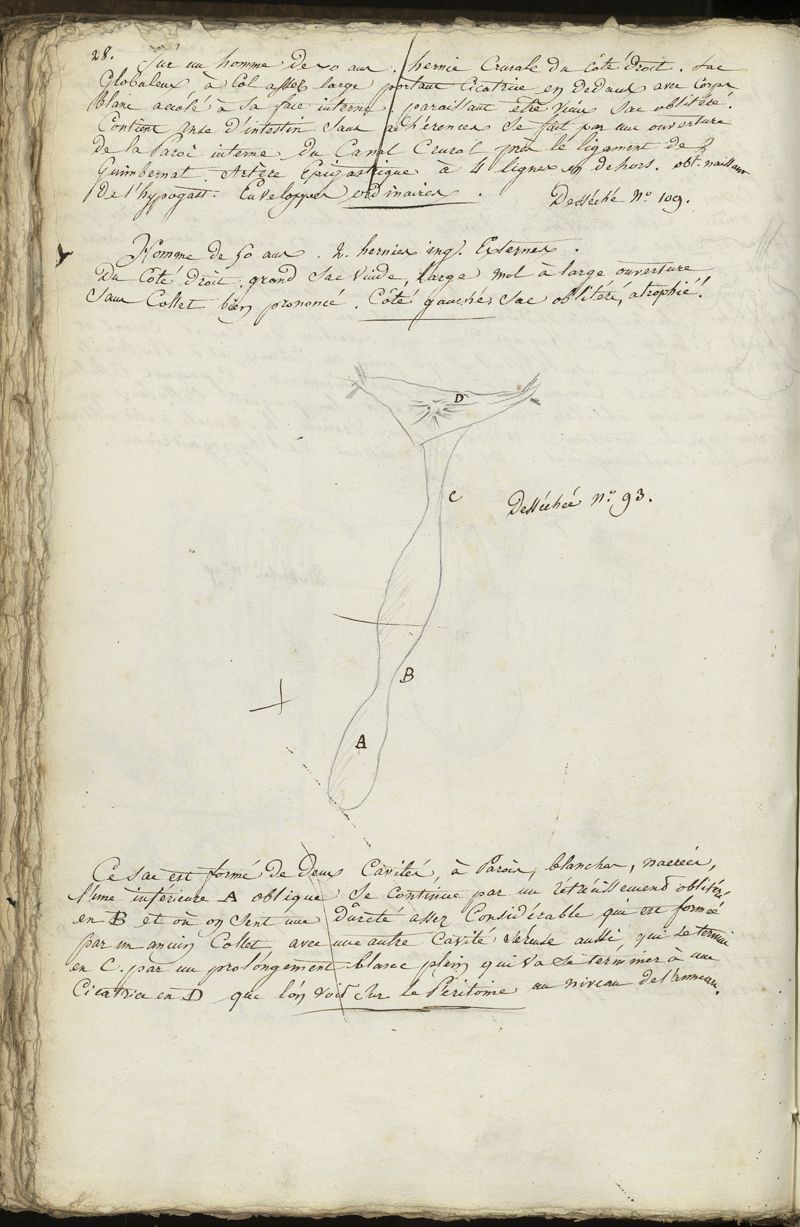 28.
Sur un homme de 50 ans. hernie Crurale du côté droit. Sac
Globuleux à Col assez large portant Cicatrice en Dedans avec Corps
blanc accolé à sa face interne, paraissant être vieux sac oblitéré.
Contient Anse d'intestin sans adhérences se fait par une ouverture
de la Paroi interne du Canal Crural près le ligament de
Guimbernat. Artère Epigastrique à 4 lignes en dehors. obt. naissant
de l'hypogast. Enveloppes ordinaires.
Desséché N° 109.
Homme de 50 ans. 2. hernies ing. Externes.
Du Côté droit grand sac vuide, large mol à large ouverture,
Sans Collet bien prononcé. Côté gauche, sac oblitéré, atrophié!
D
C
Desséchée N° 93.
B
A
Ce sac est formé de Deux Cavités, à Parois, blanches, nacrées,
l'une inférieure A oblique se continue par un rétrécissement oblitéré
en B et où on sent une dûreté assez Considérable qui est formée
par un ancien Collet avec une autre Cavité séreuse aussi, qui se termine
en C. par un prolongement blanc plein qui va se terminer à une
Cicatrice en D que l'on voit sur le Péritoine au niveau de l'anneau.